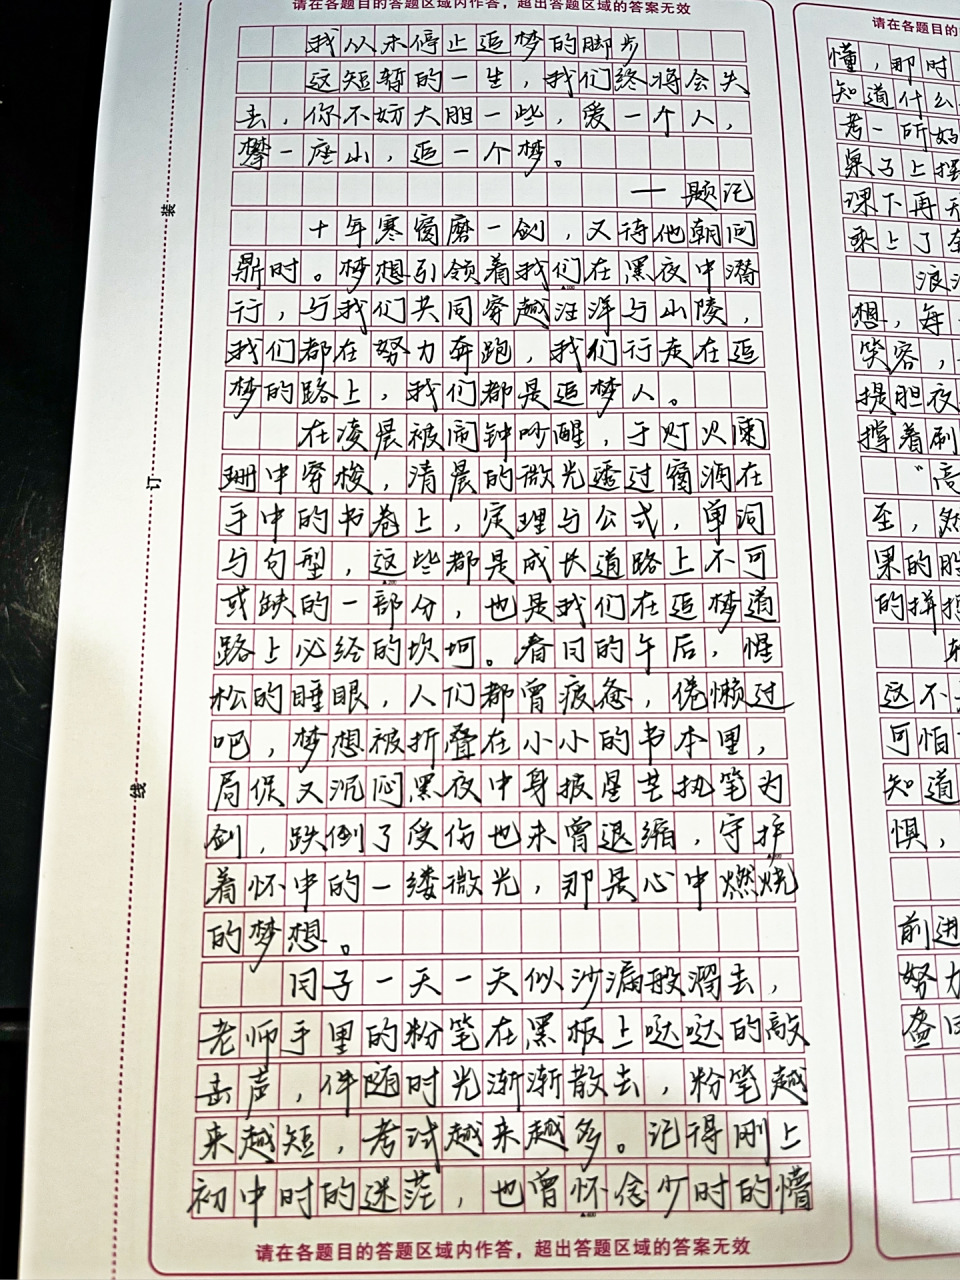 请在各题目的答题区域内作答，超出答题区域的答案无效
我从未停止追梦的脚步
这短暂的一生，我们终将会失
去，你不妨大胆一些，爱一个人，
攀一座山，追一个梦。
——题记
十年寒窗磨一剑，又待他朝问
鼎时。梦想引领着我们在黑夜中潜
行，与我们共同穿越汪洋与山陵，
我们都在努力奔跑，我们行走在追
梦的路上，我们都是追梦人。
在凌晨被闹钟吵醒，于灯火阑
珊中穿梭，清晨的微光透过窗洞在
手中的书卷上，定理与公式，单词
与句型，这些都是成长道路上不可
或缺的一部分，也是我们在追梦道
路上必经的坎坷。春日的午后，惺
松的睡眼，人们都曾疲惫，倦懒过
吧，梦想被折叠在小小的书本里，
局促又沉闷黑夜中身披星芒执笔为
剑，跌倒了受伤也未曾退缩，守护
着怀中的一缕微光，那是心中燃烧
的梦想。
同子一天一天似沙漏般溜去，
老师手里的粉笔在黑板上哒哒的敲
击声，伴随时光渐渐散去，粉笔越
来越短，考试越来越多。记得刚上
初中时的迷茫，也曾怀念少时的懵
请在各题目的答题区域内作答，超出答题区域的答案无效
装
订
线
请在各题目的
懂，那时
知道什么
考一所好
桌子上
课下再
乘上了
浪
想，每
笑容，
提胆夜
撑着刷
“高
至，
果的
的拼
这不
可怕
知道
惧，
前进
努力
盛